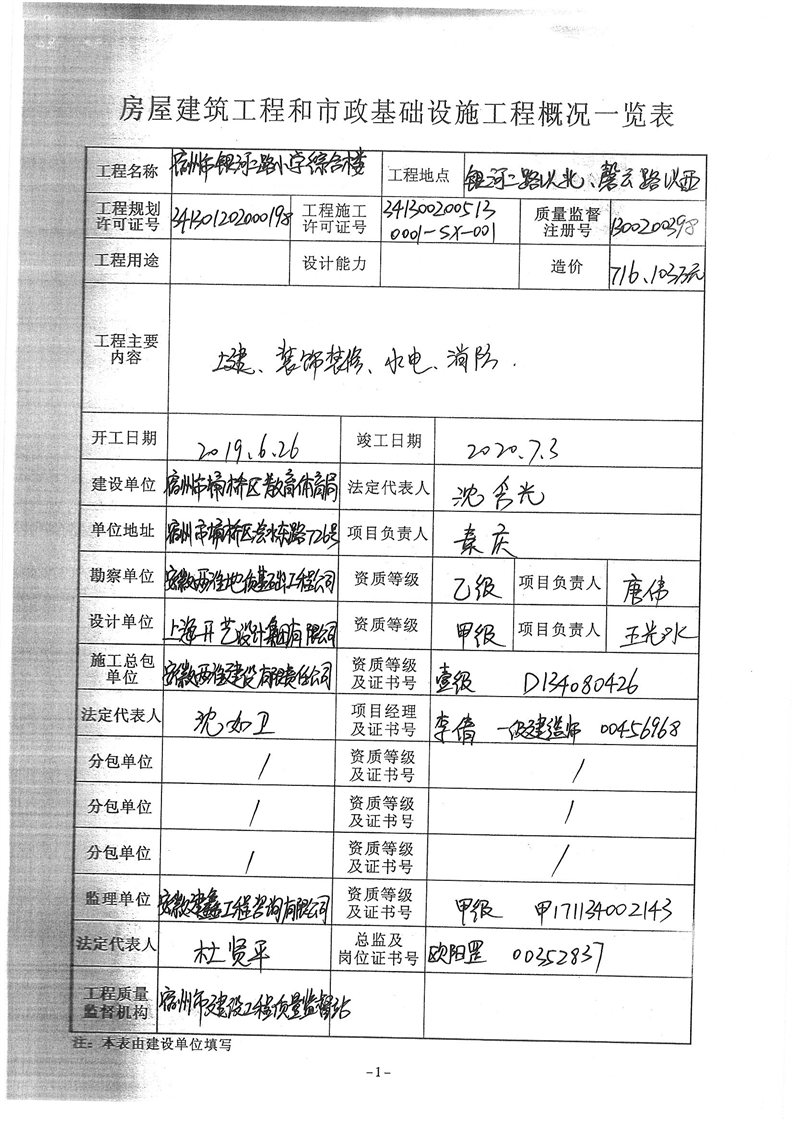 房屋建筑工程和市政基础设施工程概况一览表
工程名称 宿州市银河路小学综合楼 工程地点 银河二路以北、磬云路以西
工程规划许可证号 341301202000198 工程施工许可证号 341300200513 0001-SX-001 质量监督注册号 1300200398
工程用途 设计能力 造价 716.103万元
工程主要内容 土建、装饰装修、水电、消防.
开工日期 2019.6.26 竣工日期 2020.7.3
建设单位 宿州市埇桥区教育体育局 法定代表人 沈秀光
单位地址 宿州市埇桥区汴水东路726号 项目负责人 袁庆
勘察单位 安徽西淮地质基础工程公司 资质等级 乙级 项目负责人 唐伟
设计单位 上海开艺设计集团有限公司 资质等级 甲级 项目负责人 王光水
施工总包单位 安徽西淮建设有限责任公司 资质等级及证书号 壹级 D134080426
法定代表人 沈如卫 项目经理及证书号 李倩 一级建造师 00456968
分包单位 / 资质等级及证书号 /
分包单位 / 资质等级及证书号 /
分包单位 / 资质等级及证书号 /
监理单位 安徽建鑫工程咨询有限公司 资质等级及证书号 甲级 甲171134002143
法定代表人 杜贤平 总监及岗位证书号 欧阳罡 00352837
工程质量监督机构 宿州市建设工程质量监督站
注：本表由建设单位填写
-1-